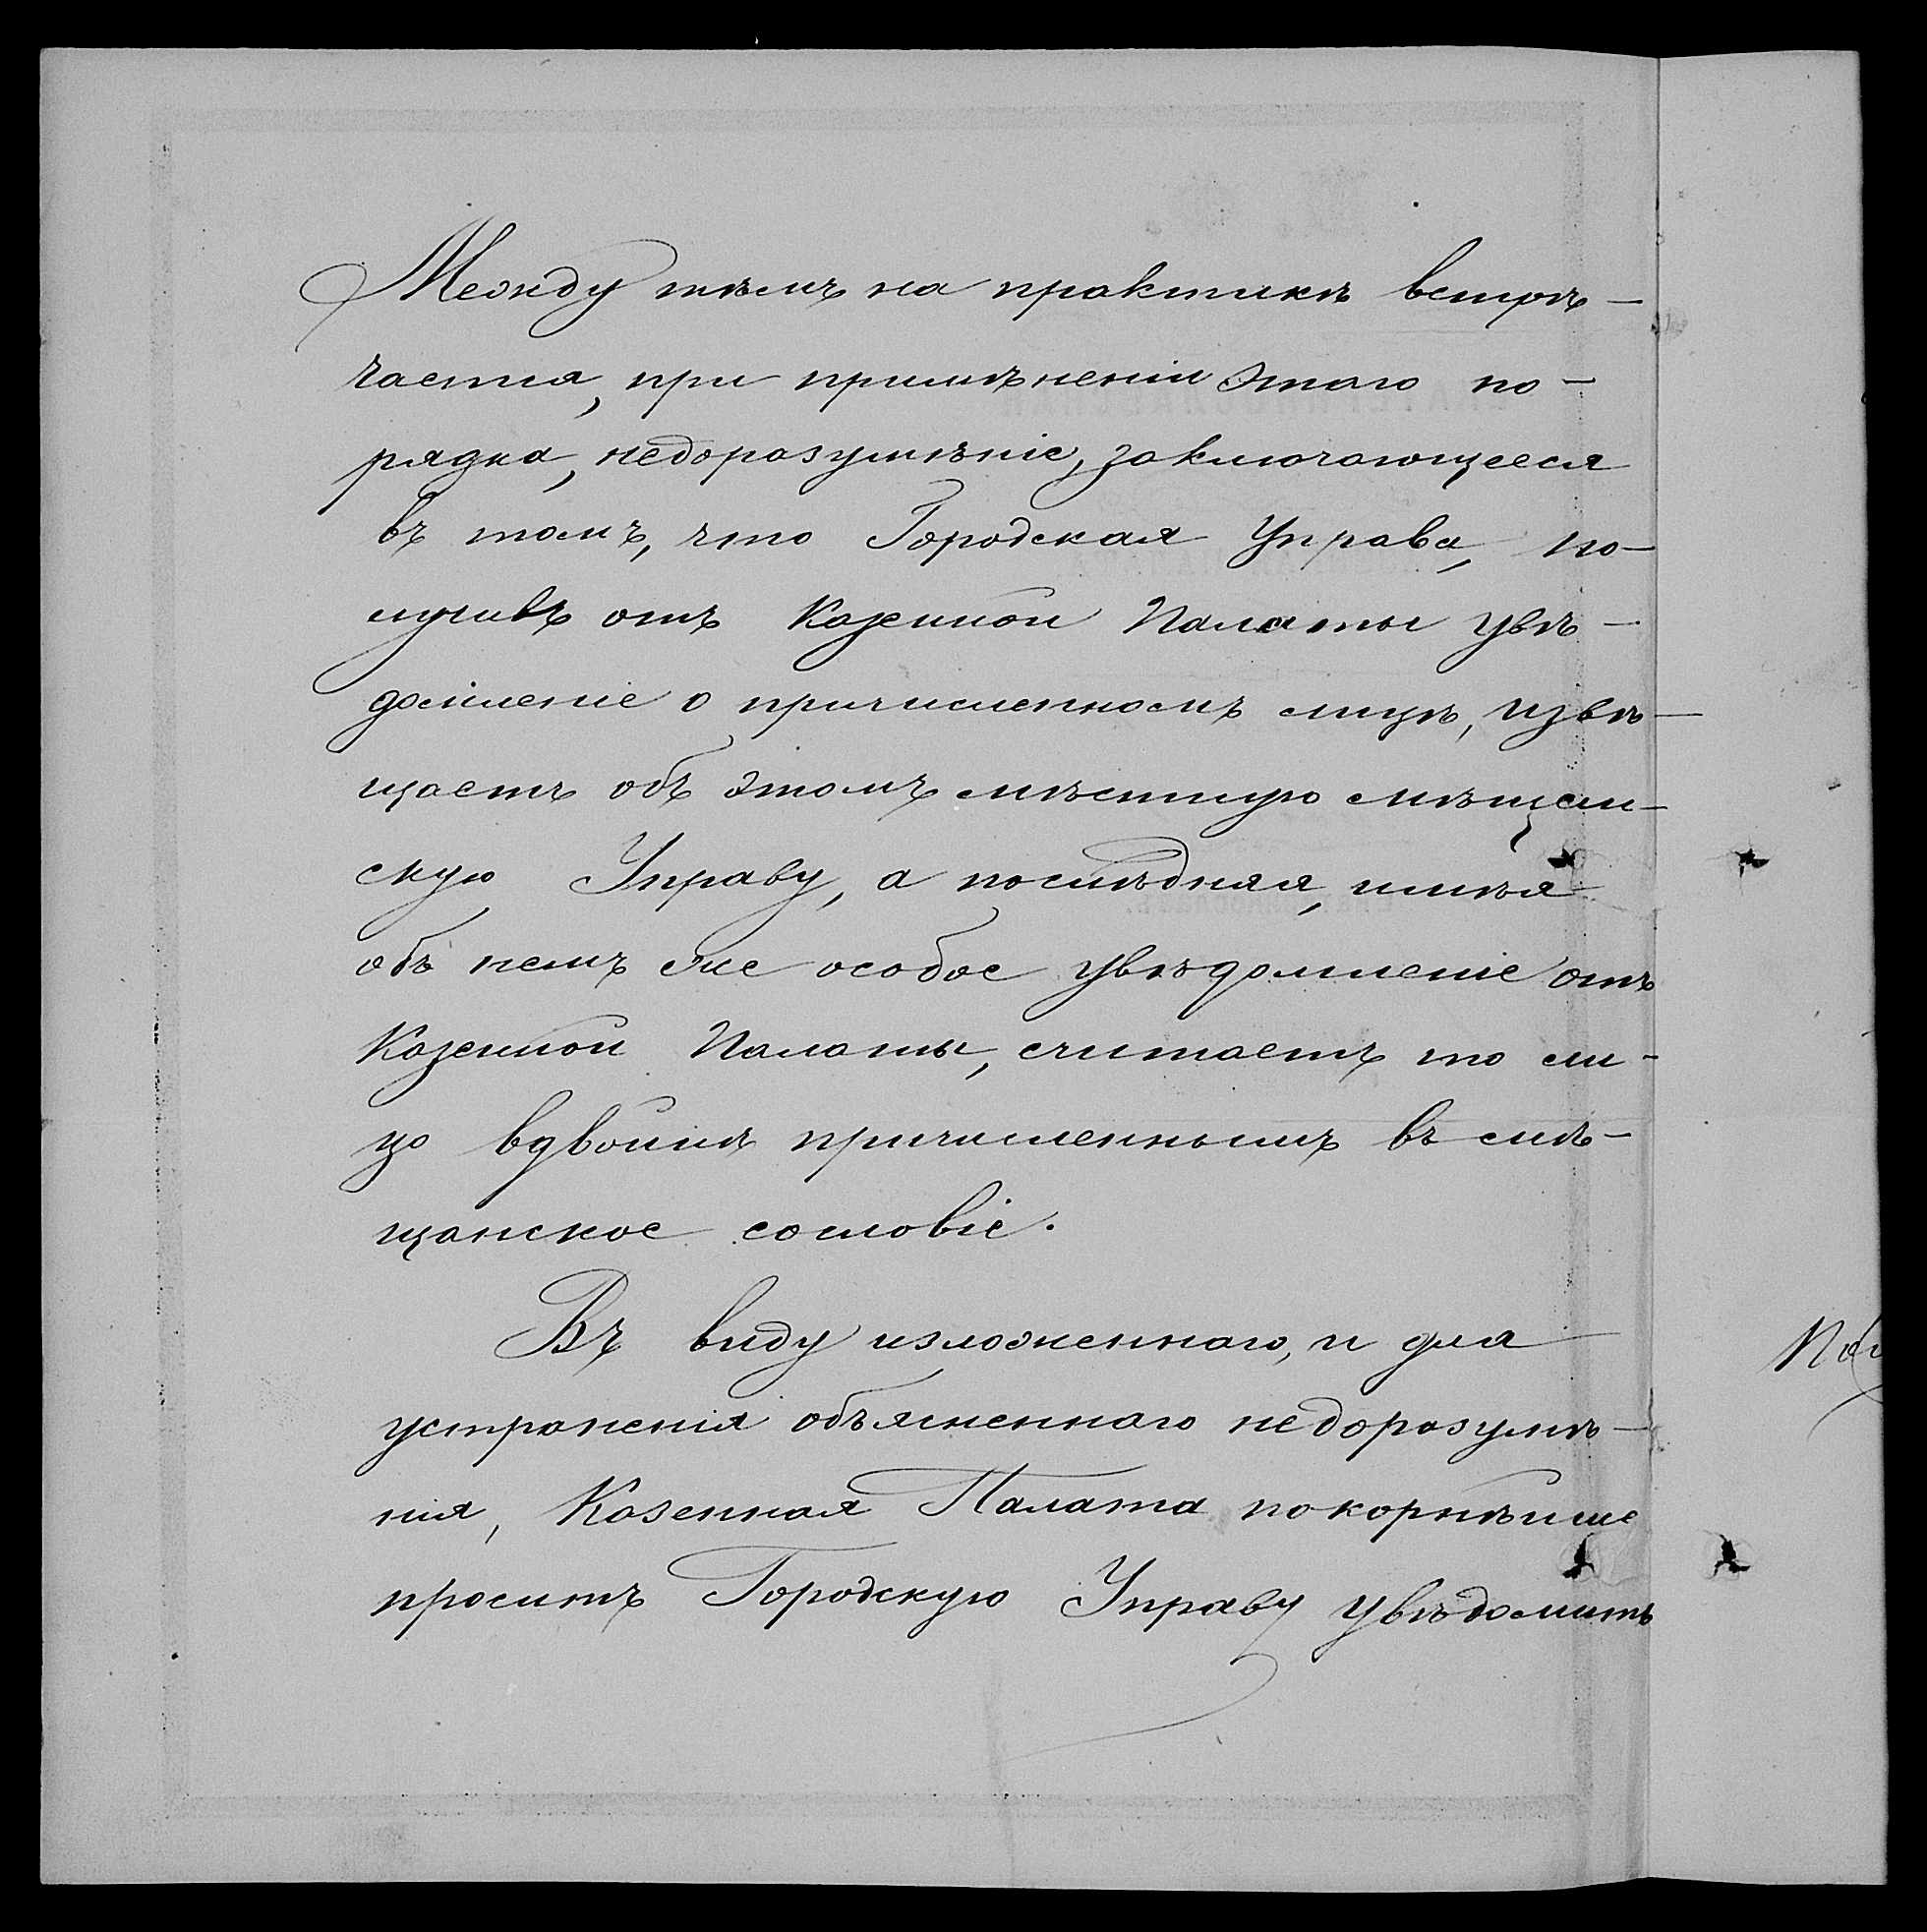 Между тѣмъ на практикѣ встрѣ-
чается, при примѣненіи этого по-
рядка, недоразумѣніе, заключающееся
въ томъ, что Городская Управа, по-
лучивъ отъ Казенной Палаты увѣ-
домленіе о причисленномъ лицѣ, извѣ-
щаетъ объ этомъ мѣстную мѣщан-
скую Управу, а послѣдняя, имѣя
объ немъ же особое увѣдомленіе отъ
Казенной Палаты, считаетъ то ли-
цо вдвойнѣ причисленнымъ въ мѣ-
щанское сословіе.
Въ виду изложеннаго, и для
устраненія объясненнаго недоразумѣ-
нія, Казенная Палата покорнѣйше
проситъ Городскую Управу увѣдомить